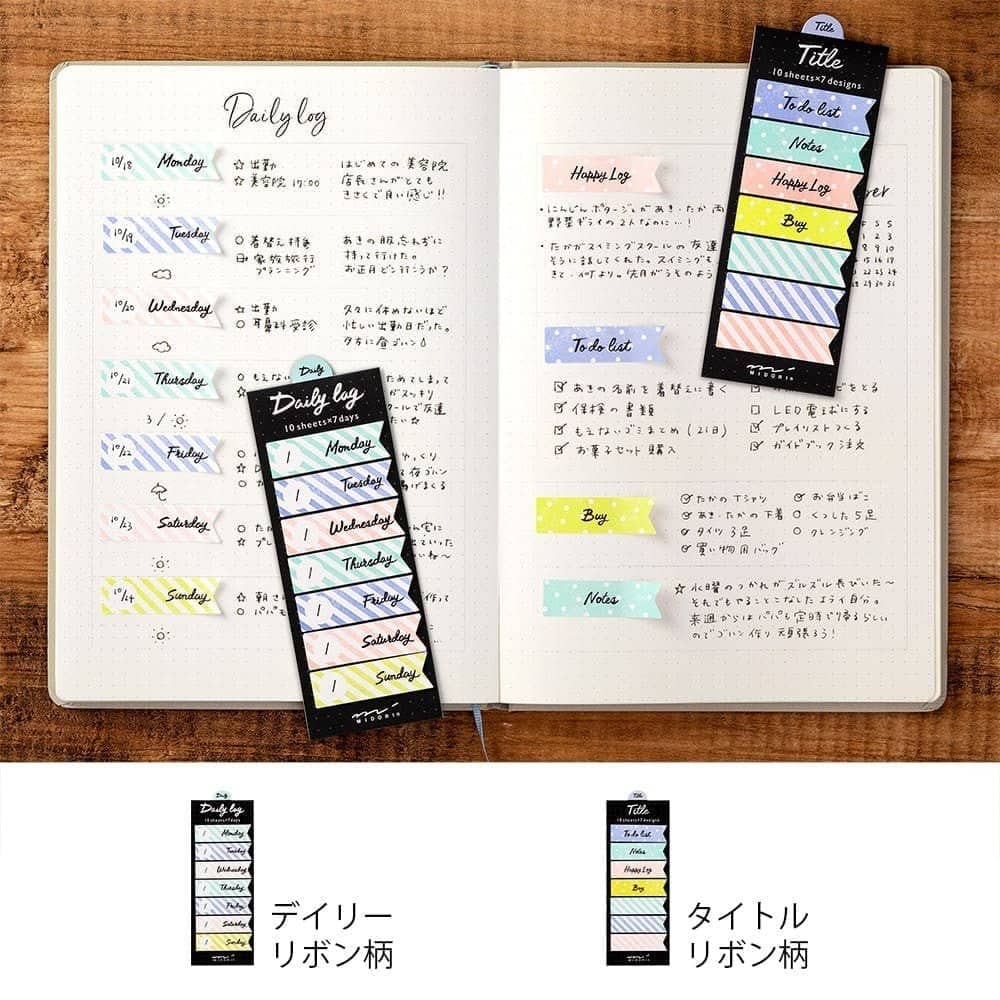 Daily log
10/18 Monday
☆ 出勤
☆ 美容院 17:00
はじめての 美容院
店長さんがとても
きさくで良い感じ!!
10/19 Tuesday
○ 着替え持参
家族旅行
プランニング
あきの服忘れずに
持って行けた。
お正月どこ行こうか?
10/20 Wednesday
☆ 出勤
○ 耳鼻科受診
久々に休めないほど
忙しい出勤日だった。
夕方に昼ゴハン
10/21 Thursday
○ もえない
ためてしまって
がスッキリ
クールで友達
3/
10/22 Friday
10/23 Saturday
10/24 Sunday
☆ 朝さ
○ パパも
作って
Daily
Daily log
10 sheets×7 days
/ Monday
/ Tuesday
/ Wednesday
/ Thursday
/ Friday
/ Saturday
/ Sunday
MIDORI
Happy Log
・にんじんポタージュがあき・たか両
野菜ギライの2人なのに…!
・たかがスイミングスクールの友達
そうに話してくれた。スイミングも
To do list
☑ あきの名前を着替えに書く
☑ 保検の書類
☑ もえないゴミまとめ (21日)
☑ お菓子セット購入
ビをとる
□ LED電球にする
☑ プレイリストつくる
☑ ガイドブック注文
Buy
たかのTシャツ
あき・たかの下着
タイツ 3足
買い物用バッグ
お弁当ばこ
くつした5足
クレンジング
Notes
☆ 水曜のつかれがズルズル長びいた〜
それでもやることこなしたよライ自分。
来週からはパパも定時で帰るらしい
のでゴハン作り頑張ろう!
Title
Title
10 sheets×7 designs
To do list
Notes
Happy Log
Buy
MIDORI
Daily
Daily log
10 sheets×7 days
/ Monday
/ Tuesday
/ Wednesday
/ Thursday
/ Friday
/ Saturday
/ Sunday
デイリー
リボン柄
Title
Title
10 sheets×7 designs
To do list
Notes
Happy Log
Buy
タイトル
リボン柄